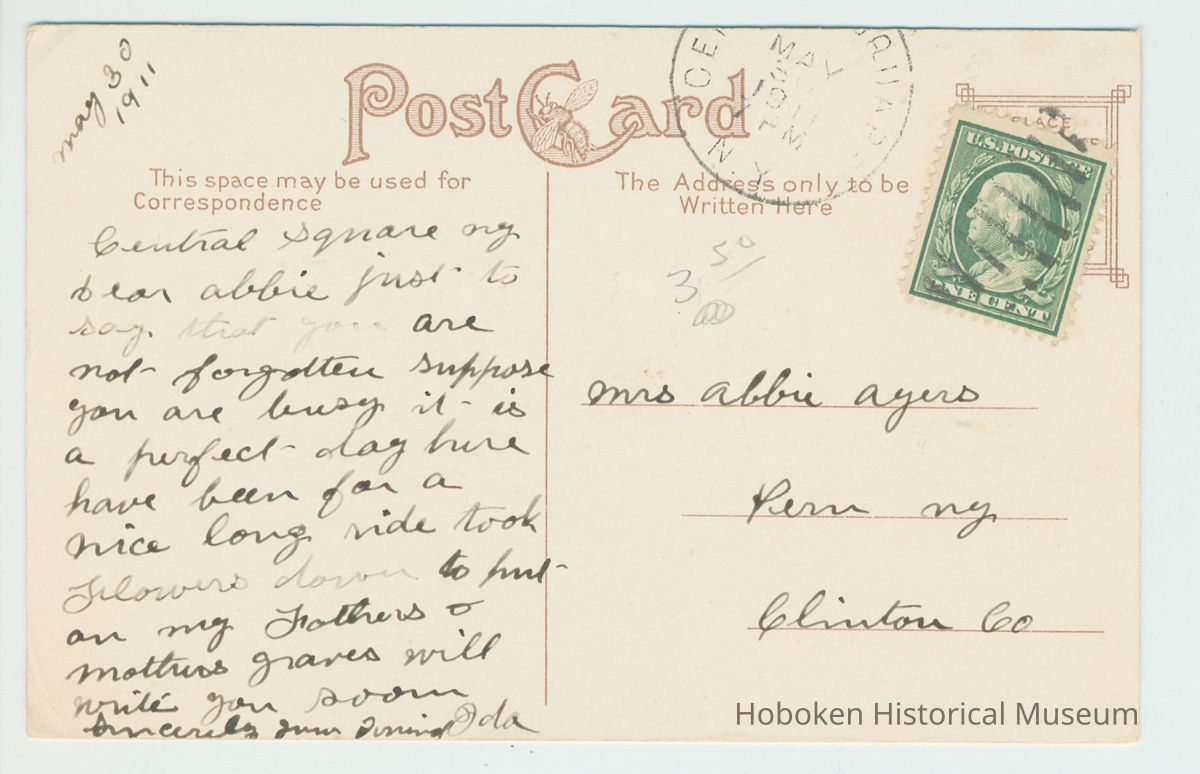 may 30
1911
Post Card
This space may be used for
Correspondence
Central Square ny
Dear abbie just to
say that you are
not forgotten suppose
you are busy it is
a perfect day here
have been for a
nice long ride took
Flowers down to put
on my Fathers &
mothers graves will
write you soon
Sincerely your Friend Ida
MAY
N.Y.
The Address only to be
Written Here
U.S. POSTAGE
ONE CENT
3 50
mrs abbie ayers
Peru ny
Clinton Co
Hoboken Historical Museum